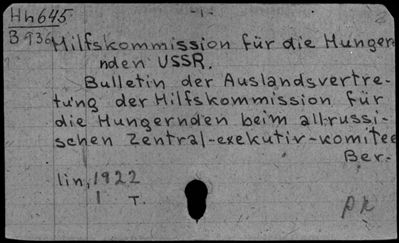 Hh 645
-1-
B 936
Hilfskommission für die Hunger
nden USSR.
Bulletin der Auslandsvertre-
tung der Hilfskommission für
die Hungernden beim allrussi-
schen Zentral-exekutiv-komitee
Ber-
lin, 1922
1 T.